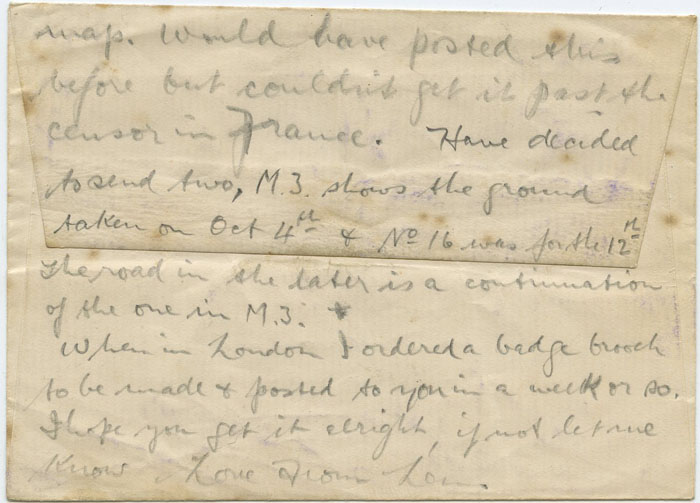 map. Would have posted this
before but couldn't get it past the
censor in France. Have decided
to send two, M.3. shows the ground
taken on Oct 4th & No 16 was for the 12th
The road in the later is a continuation
of the one in M.3.
When in London I ordered a badge brooch
to be made & posted to you in a week or so.
I hope you get it alright, if not let me
know. Love from Len.